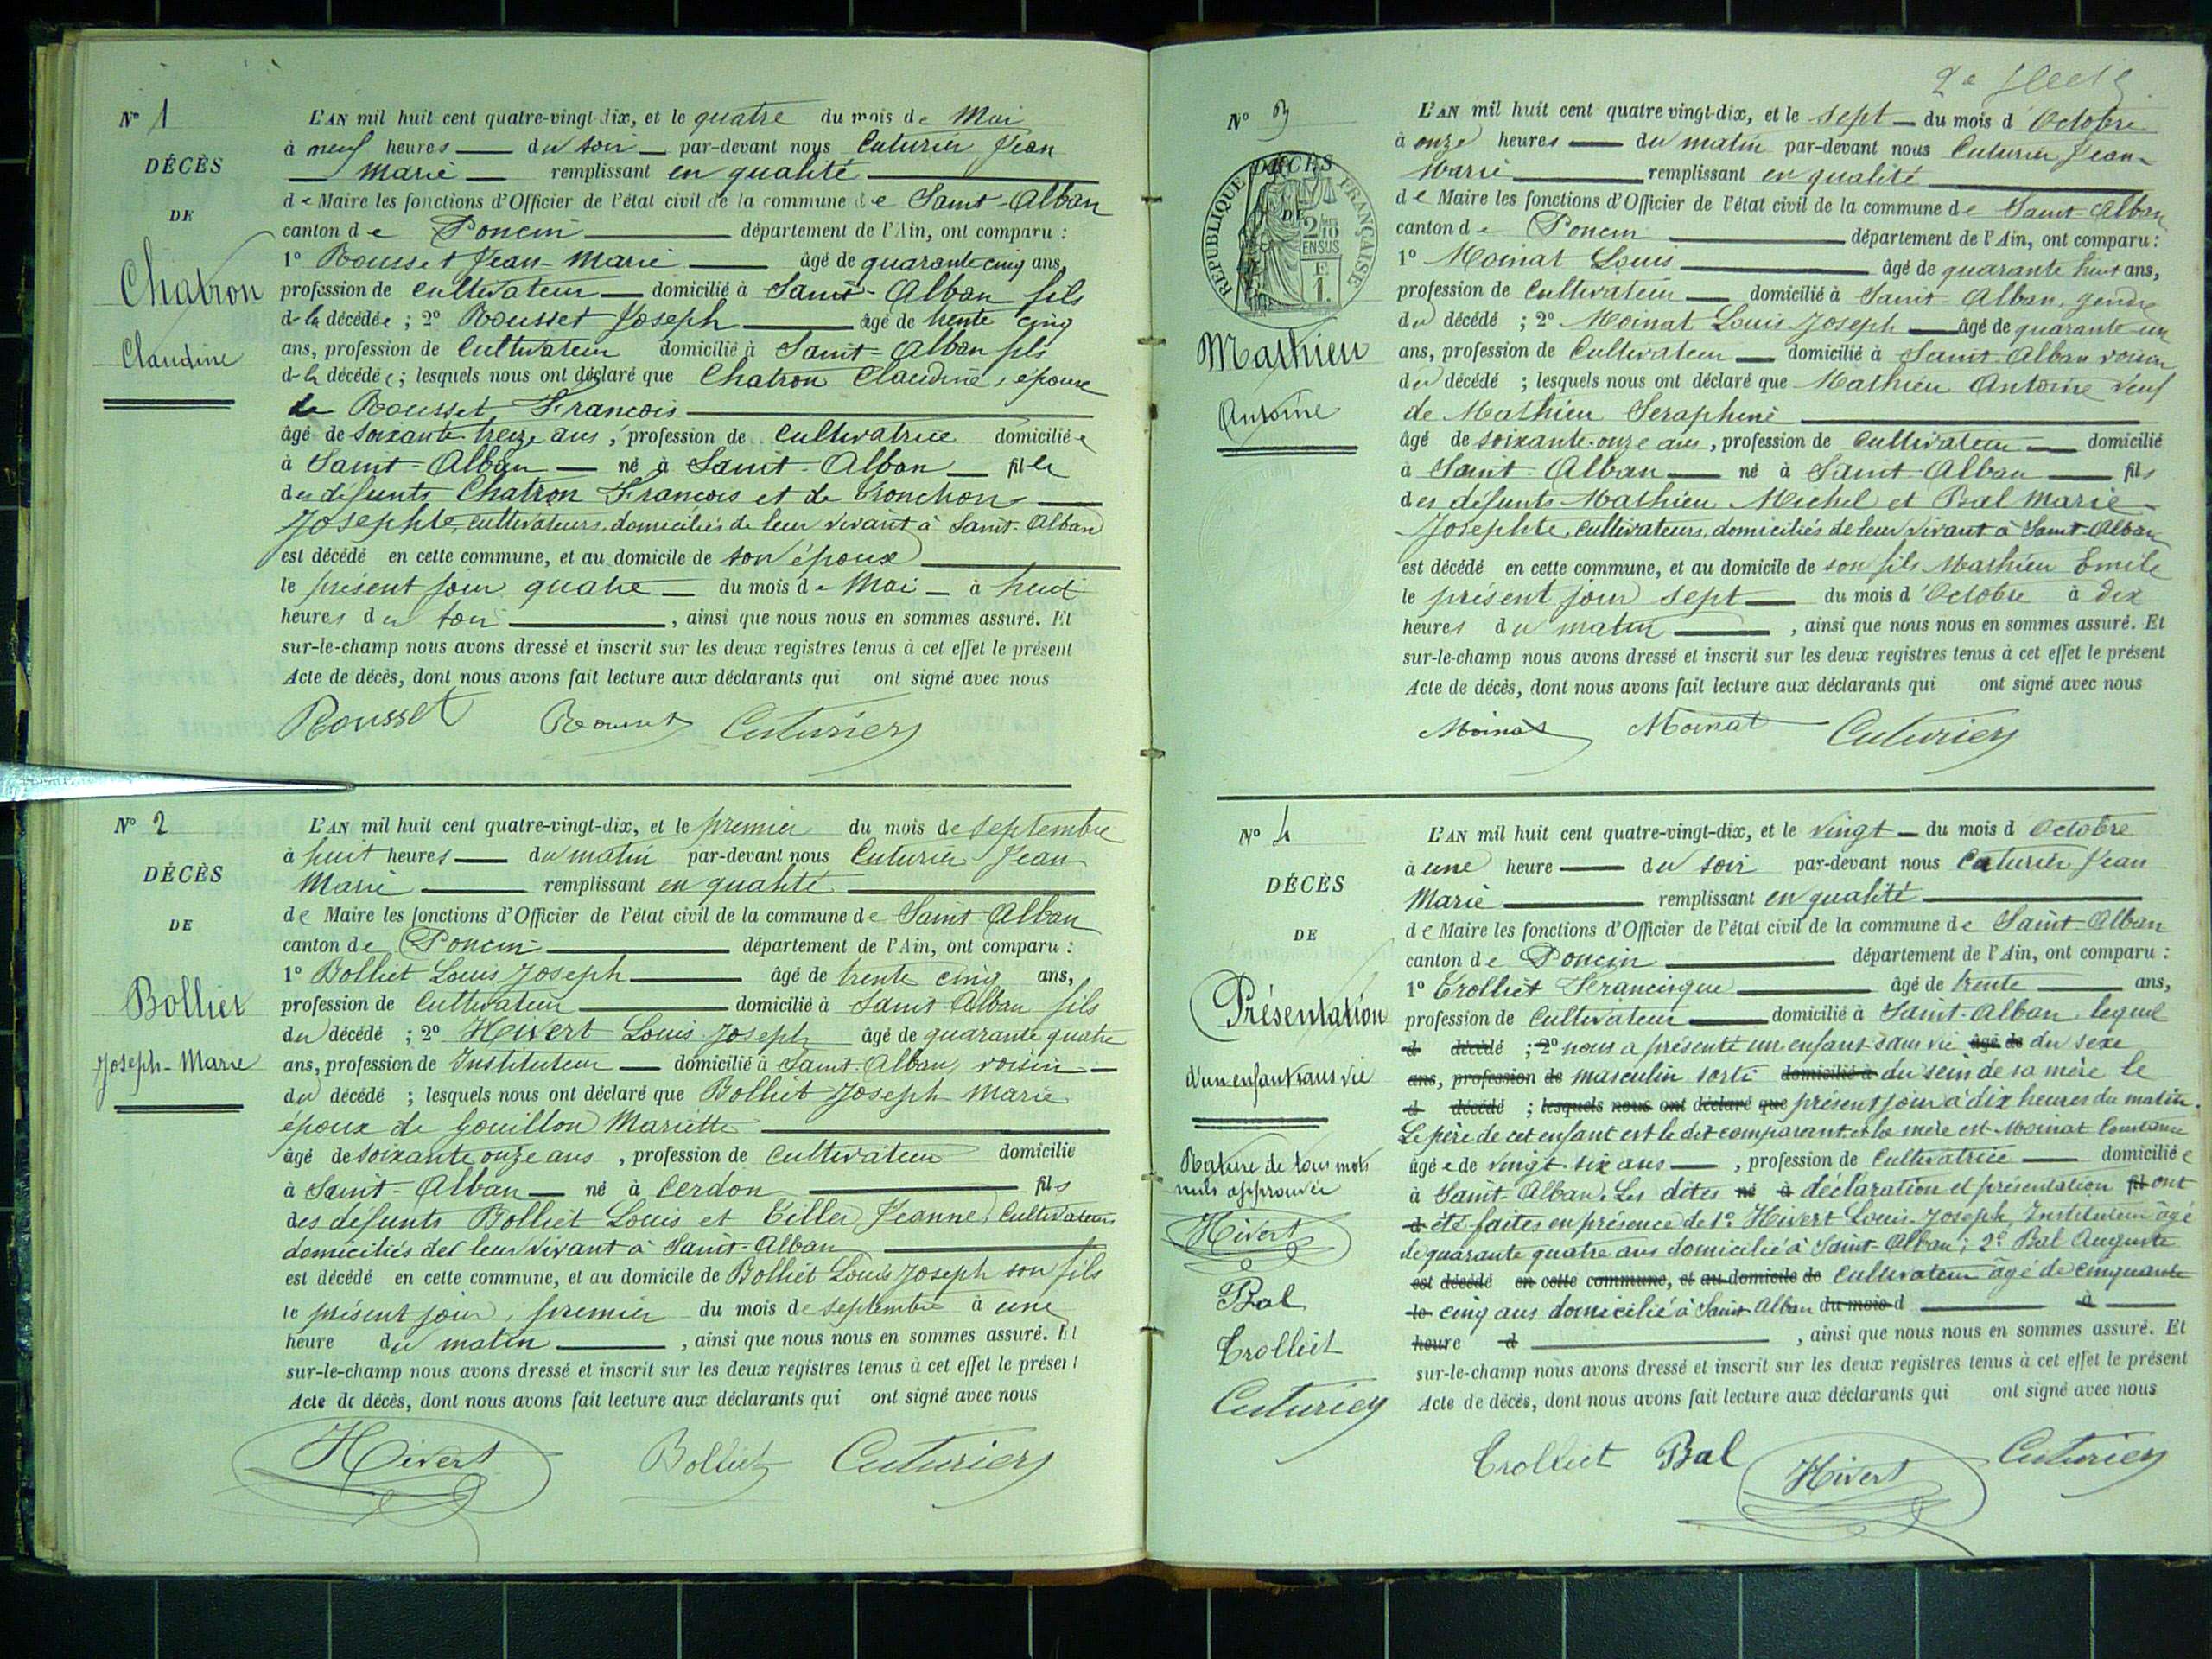 N° 1
DÉCÈS
DE
Chatron
Claudine
L'AN mil huit cent quatre-vingt-dix, et le quatre du mois de Mai
à neuf heures du soir par-devant nous Cuturier Jean
Marie remplissant en qualité
de Maire les fonctions d'Officier de l'état civil de la commune de Saint-Alban
canton de Poncin département de l'Ain, ont comparu :
1° Rousset Jean-Marie âgé de quarante cinq ans,
profession de Cultivateur domicilié à Saint-Alban fils
de la décédée ; 2° Rousset Joseph âgé de trente cinq
ans, profession de Cultivateur domicilié à Saint-Alban fils
de la décédée ; lesquels nous ont déclaré que Chatron Claudine, épouse
de Rousset François
âgé de soixante-treize ans, profession de Cultivatrice domiciliée
à Saint-Alban né à Saint-Alban fille
des défunts Chatron François et de Tronchon
Josephte, cultivateurs, domiciliés de leur vivant à Saint-Alban
est décédé en cette commune, et au domicile de son époux
le présent jour quatre du mois de Mai à huit
heures du soir, ainsi que nous nous en sommes assuré. Et
sur-le-champ nous avons dressé et inscrit sur les deux registres tenus à cet effet le présent
Acte de décès, dont nous avons fait lecture aux déclarants qui ont signé avec nous
Rousset Rousset Cuturier
N° 2
DÉCÈS
DE
Bolliet
Joseph-Marie
L'AN mil huit cent quatre-vingt-dix, et le premier du mois de septembre
à huit heures du matin par-devant nous Cuturier Jean
Marie remplissant en qualité
de Maire les fonctions d'Officier de l'état civil de la commune de Saint-Alban
canton de Poncin département de l'Ain, ont comparu :
1° Bolliet Louis Joseph âgé de trente cinq ans,
profession de Cultivateur domicilié à Saint-Alban fils
du décédé ; 2° Hivert Louis Joseph âgé de quarante quatre
ans, profession de Instituteur domicilié à Saint-Alban, voisin
du décédé ; lesquels nous ont déclaré que Bolliet Joseph Marie
époux de Gouillon Mariette
âgé de soixante onze ans, profession de Cultivateur domicilié
à Saint-Alban né à Cerdon fils
des défunts Bolliet Louis et Tiller Jeanne, Cultivateurs
domiciliés de leur vivant à Saint-Alban
est décédé en cette commune, et au domicile de Bolliet Louis Joseph son fils
le présent jour, premier du mois de septembre à une
heure du matin, ainsi que nous nous en sommes assuré. Et
sur-le-champ nous avons dressé et inscrit sur les deux registres tenus à cet effet le présent
Acte de décès, dont nous avons fait lecture aux déclarants qui ont signé avec nous
Hivert Bolliet Cuturier
2e
N° 3
DÉCÈS
DE
RÉPUBLIQUE FRANÇAISE
2/10 EN SUS
F 1.
Mathieu
Antoine
L'AN mil huit cent quatre-vingt-dix, et le sept du mois d'Octobre
à onze heures du matin par-devant nous Cuturier Jean-
Marie remplissant en qualité
de Maire les fonctions d'Officier de l'état civil de la commune de Saint-Alban
canton de Poncin département de l'Ain, ont comparu :
1° Moinat Louis âgé de quarante huit ans,
profession de Cultivateur domicilié à Saint-Alban, gendre
du décédé ; 2° Moinat Louis Joseph âgé de quarante un
ans, profession de Cultivateur domicilié à Saint-Alban voisin
du décédé ; lesquels nous ont déclaré que Mathieu Antoine veuf
de Mathieu Seraphine
âgé de soixante-onze ans, profession de Cultivateur domicilié
à Saint-Alban né à Saint-Alban fils
des défunts Mathieu Michel et Bal Marie-
Josephte, cultivateurs, domiciliés de leur vivant à Saint-Alban
est décédé en cette commune, et au domicile de son fils Mathieu Emile
le présent jour sept du mois d'Octobre à dix
heures du matin, ainsi que nous nous en sommes assuré. Et
sur-le-champ nous avons dressé et inscrit sur les deux registres tenus à cet effet le présent
Acte de décès, dont nous avons fait lecture aux déclarants qui ont signé avec nous
Moinat Moinat Cuturier
N° 4
DÉCÈS
DE
Présentation
d'un enfant sans vie
Rature de tous mots
nuls approuvée
Hivert
Bal
Trolliet
Cuturier
L'AN mil huit cent quatre-vingt-dix, et le vingt du mois d Octobre
à une heure du soir par-devant nous Cuturier Jean
Marie remplissant en qualité
de Maire les fonctions d'Officier de l'état civil de la commune de Saint-Alban
canton de Poncin département de l'Ain, ont comparu :
1° Trolliet Francisque âgé de trente ans,
profession de Cultivateur domicilié à Saint-Alban lequel
d décédé ; 2° nous a présenté un enfant sans vie âgé de du sexe
ans, profession de masculin sorti domicilié à du sein de sa mère le
d décédé ; lesquels nous ont déclaré que présent jour à dix heures du matin.
Le père de cet enfant est le dit comparant et la mère est Moinat Constance
âgée de vingt-six ans, profession de Cultivatrice domiciliée
à Saint-Alban. Les dites né à déclaration et présentation fil ont
d été faites en présence de 1° Hivert Louis-Joseph, Instituteur âgé
de quarante quatre ans domicilié à Saint-Alban ; 2° Bal Auguste
est décédé en cette commune, et au domicile de Cultivateur âgé de cinquante
le cinq ans domicilié à Saint-Alban du mois d à
heure d, ainsi que nous nous en sommes assuré. Et
sur-le-champ nous avons dressé et inscrit sur les deux registres tenus à cet effet le présent
Acte de décès, dont nous avons fait lecture aux déclarants qui ont signé avec nous
Trolliet Bal Hivert Cuturier